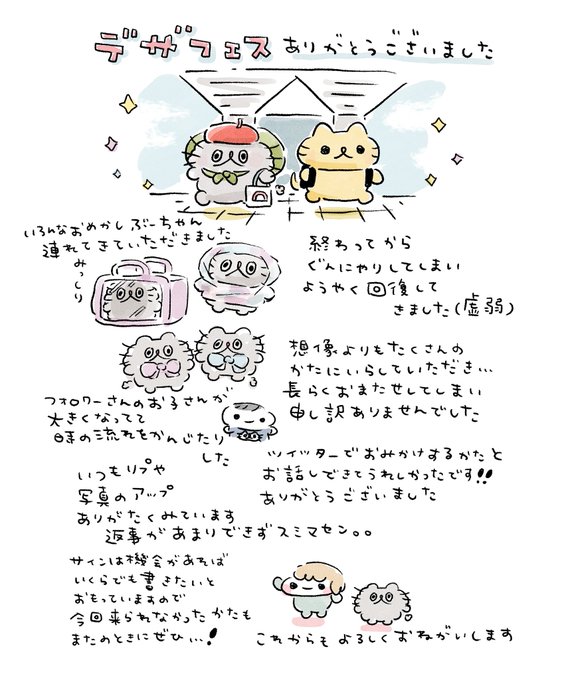 デザフェス ありがとうございました
いろんなおめかしぶーちゃん
連れてきていただきました
みっしり
終わってから
ぐんにやりしてしまい
ようやく回復して
きました(虚弱)
想像よりもたくさんの
かたにいらしていただき…
長らくおまたせしてしまい
申し訳ありませんでした
フォロワーさんのお子さんが
大きくなってて
時の流れをかんじたり
した
ツイッターでおみかけするかたと
お話しできてうれしかったです!!
ありがとうございました
いつもリプや
写真のアップ
ありがたくみています
返事があまりできずスミマセン。。
サインは機会があれば
いくらでも書きたいと
おもっていますので
今回来られなかったかたも
またのときにぜひ…!
これからもよろしくおねがいします